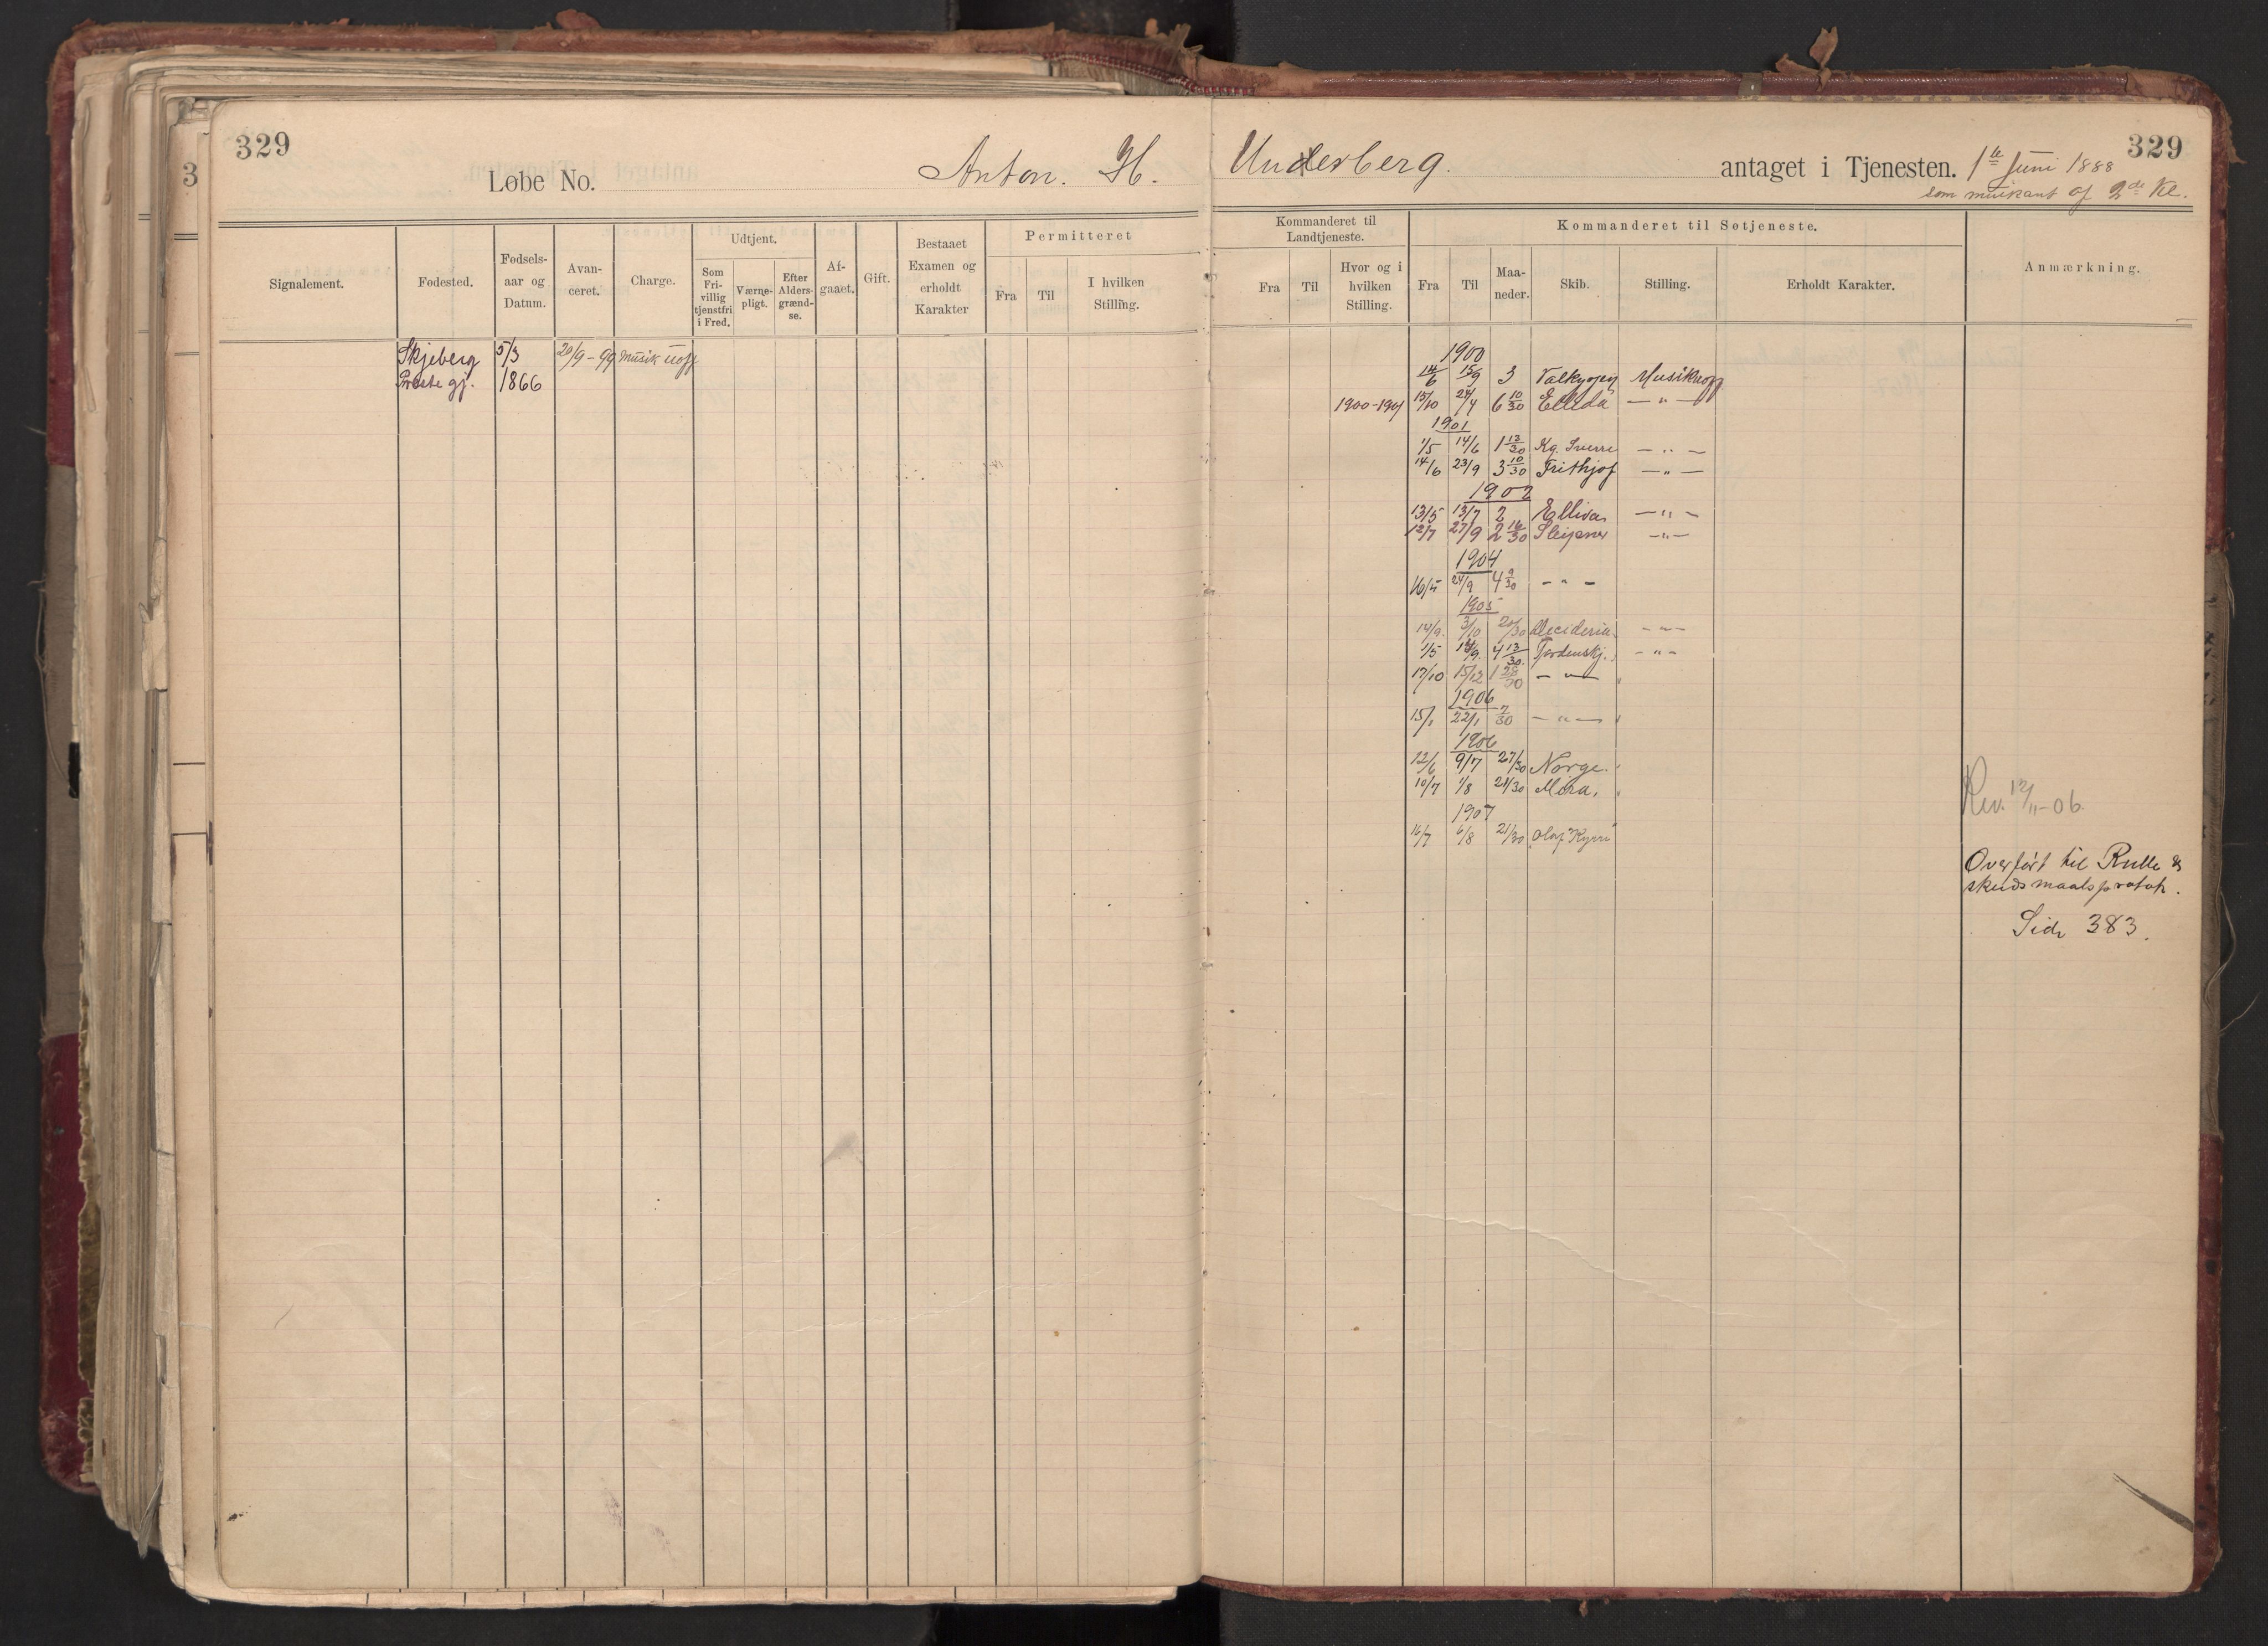 329
3
Løbe No. Anton. H.
Signalement.
Fødested.
Fødsels-
aar og
Datum.
Avan-
ceret.
Charge.
Udtjent.
Som
Fri-
villig
tjenstfri
i Fred.
Værne-
pligt.
Efter
Alders-
grænd-
se.
Af-
gaaet.
Gift.
Bestaaet
Examen og
erholdt
Karakter
Permitteret
Fra
Til
I hvilken
Stilling.
Skjeberg 5/3 20/9-99 Musik uoff
Preste gj. 1866
329
Underberg. antaget i Tjenesten. 1ste Juni 1888
som musikant af 2de Kl.
Kommanderet til
Landtjeneste.
Fra
Til
Hvor og i
hvilken
Stilling.
Kommanderet til Søtjeneste.
Fra
Til
Maa-
neder.
Skib.
Stilling.
Erholdt Karakter.
Anmærkning.
1900
14/6 15/9 3 Valkyrjen Musikuoff
1900-1901 15/10 24/4 6 10/30 Ellida — " —
1901
1/5 14/6 1 13/30 Kg. Sverre — " —
14/6 23/9 3 10/30 Frithjof — " —
1902
13/5 13/7 2 Ellida — " —
12/7 27/9 2 16/30 Sleipner — " —
1904
16/5 24/9 4 9/30 — " —
1905
14/9 3/10 20/30 — " —
1/5 13/9 4 13/30 Tordenskj. — " —
17/10 15/12 — " —
1906
15/1 22/1 7/30 — " —
1906
12/6 9/7 27/30 Norge.
10/7 1/8 21/30 Mira.
1907
16/7 6/8 21/30 "Olaf Kyrre"
Rev. 12/11-06.
Overført til Rulle &
skudsmaalsprotok.
Side 383.